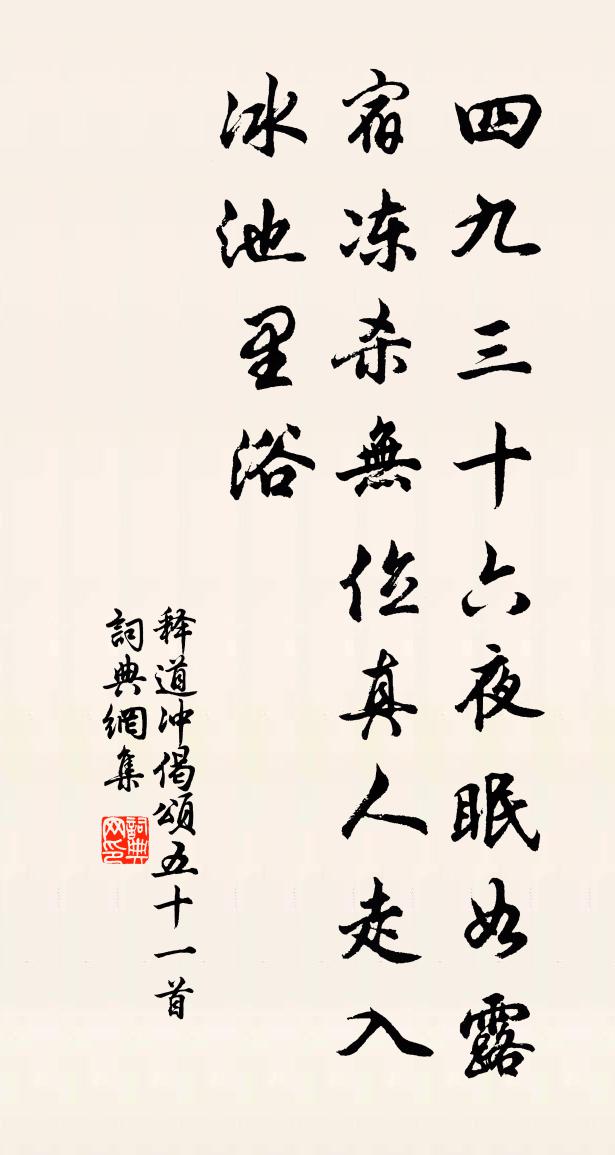 四九三十六夜眠如露
宿冻杀無位真人走入
冰池里浴
释道冲偈頌五十一首
詞典網集
詞典网印